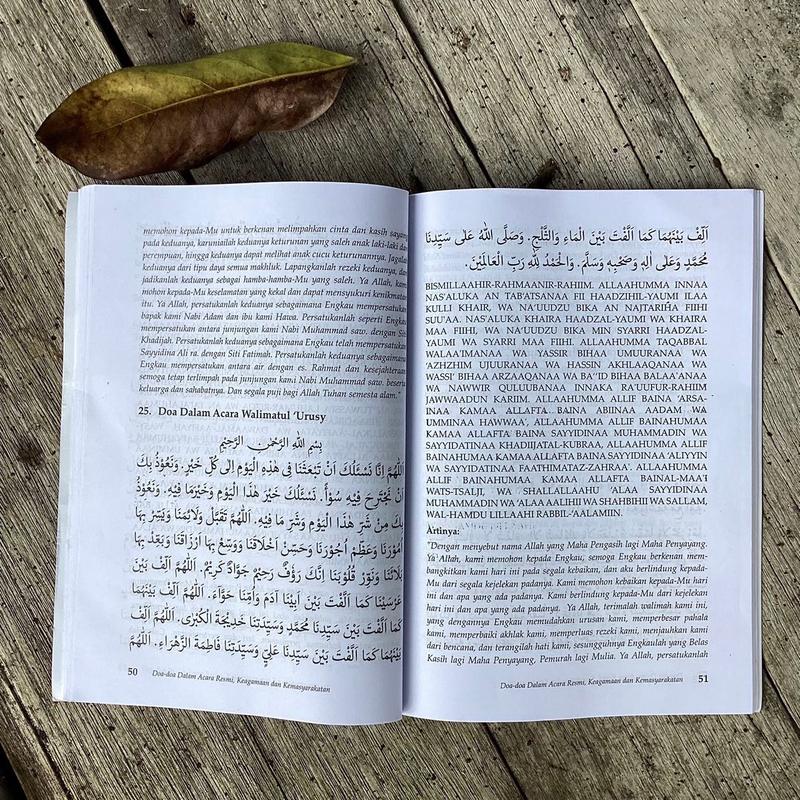 memohon kepada-Mu untuk berkenan melimpahkan cinta dan kasih sayang
pada keduanya, karuniailah keduanya keturunan yang saleh anak laki-laki dan
perempuan, hingga keduanya dapat melihat anak cucu keturunannya. Jagalah
keduanya dari tipu daya semua makhluk. Lapangkanlah rezeki keduanya, dan
jadikanlah keduanya sebagai hamba-hamba-Mu yang saleh. Ya Allah, kami
mohon kepada-Mu keselamatan yang kekal dan dapat mensyukuri kenikmatan
itu. Ya Allah, persatukanlah keduanya sebagaimana Engkau mempersatukan
bapak kami Nabi Adam dan ibu kami Hawa. Persatukanlah seperti Engkau
mempersatukan antara junjungan kami Nabi Muhammad saw. dengan Siti
Khadijah. Persatukanlah keduanya sebagaimana Engkau telah mempersatukan
Sayyidina Ali ra. dengan Siti Fatimah. Persatukanlah keduanya sebagaimana
Engkau mempersatukan antara air dengan es. Rahmat dan kesejahteraan
semoga tetap terlimpah pada junjungan kami Nabi Muhammad saw. beserta
keluarga dan sahabatnya. Dan segala puji bagi Allah Tuhan semesta alam."
25. Doa Dalam Acara Walimatul 'Urusy
بِسْمِ اللهِ الرَّحْمٰنِ الرَّحِيْمِ
اَللّٰهُمَّ اِنَّا نَسْـَٔلُكَ اَنْ تَبْعَثَنَا فِى هٰذِهِ الْيَوْمِ اِلٰى كُلِّ خَيْرٍ. وَنَعُوْذُ بِكَ
اَنْ نَجْتَرِحَ فِيْهِ سُوْأً. نَسْـَٔلُكَ خَيْرَ هٰذَا الْيَوْمِ وَخَيْرَمَا فِيْهِ. وَنَعُوْذُ
بِكَ مِنْ شَرِّ هٰذَا الْيَوْمِ وَشَرِّ مَا فِيْهِ. اَللّٰهُمَّ تَقَبَّلْ وَلَائِمَنَا وَيَسِّرْ بِهَا
اُمُوْرَنَا وَعَظِّمْ اُجُوْرَنَا وَحَسِّنْ اَخْلَاقَنَا وَوَسِّعْ بِهَا اَرْزَاقَنَا وَبَعِّدْ بِهَا
بَلَائَنَا وَنَوِّرْ قُلُوْبَنَا اِنَّكَ رَؤُفٌ رَحِيْمٌ جَوَّادٌ كَرِيْمٌ. اَللّٰهُمَّ اَلِّفْ بَيْنَ
عَرْسَيْنَا كَمَا اَلَّفْتَ بَيْنَ اَبِيْنَا اٰدَمَ وَاُمِّنَا حَوَّاءَ. اَللّٰهُمَّ اَلِّفْ بَيْنَهُمَا
كَمَا اَلَّفْتَ بَيْنَ سَيِّدِنَا مُحَمَّدٍ وَسَيِّدَتِنَا خَدِيْجَةَ الْكُبْرٰى. اَللّٰهُمَّ اَلِّفْ
بَيْنَهُمَا كَمَا اَلَّفْتَ بَيْنَ سَيِّدِنَا عَلِيٍّ وَسَيِّدَتِنَا فَاطِمَةَ الزَّهْرَاءِ. اَللّٰهُمَّ
50 Doa-doa Dalam Acara Resmi, Keagamaan dan Kemasyarakatan
اَلِّفْ بَيْنَهُمَا كَمَا اَلَّفْتَ بَيْنَ الْمَاءِ وَالثَّلْجِ. وَصَلَّى اللهُ عَلٰى سَيِّدِنَا
مُحَمَّدٍ وَعَلٰى اٰلِهٖ وَصَحْبِهٖ وَسَلَّمَ. وَالْحَمْدُ لِلّٰهِ رَبِّ الْعَالَمِيْنَ.
BISMILLAAHIR-RAHMAANIR-RAHIIM. ALLAAHUMMA INNAA
NAS'ALUKA AN TAB'ATSANAA FII HAADZIHIL-YAUMI ILAA
KULLI KHAIR, WA NA'UUDZU BIKA AN NAJTARIHA FIIHI
SUU'AA. NAS'ALUKA KHAIRA HAADZAL-YAUMI WA KHAIRA
MAA FIIHI, WA NA'UUDZU BIKA MIN SYARRI HAADZAL-
YAUMI WA SYARRI MAA FIIHI. ALLAAHUMMA TAQABBAL
WALAA'IMANAA WA YASSIR BIHAA UMUURANAA WA
'AZHZHIM UJUURANAA WA HASSIN AKHLAAQANAA WA
WASSI' BIHAA ARZAAQANAA WA BA''ID BIHAA BALAA'ANAA
WA NAWWIR QULUUBANAA INNAKA RA'UUFUR-RAHIIM
JAWWAADUN KARIIM. ALLAAHUMMA ALLIF BAINA 'ARSA-
INAA KAMAA ALLAFTA BAINA ABIINAA AADAM WA
UMMINAA HAWWAA', ALLAAHUMMA ALLIF BAINAHUMAA
KAMAA ALLAFTA BAINA SAYYIDINAA MUHAMMADIN WA
SAYYIDATINAA KHADIIJATAL-KUBRAA, ALLAAHUMMA ALLIF
BAINAHUMAA KAMAA ALLAFTA BAINA SAYYIDINAA 'ALIYYIN
WA SAYYIDATINAA FAATHIMATAZ-ZAHRAA'. ALLAAHUMMA
ALLIF BAINAHUMAA KAMAA ALLAFTA BAINAL-MAA'I
WATS-TSALJI, WA SHALLALLAAHU 'ALAA SAYYIDINAA
MUHAMMADIN WA 'ALAA AALIHII WA SHAHBIHII WA SALLAM,
WAL-HAMDU LILLAAHI RABBIL-'AALAMIIN.
Artinya:
"Dengan menyebut nama Allah yang Maha Pengasih lagi Maha Penyayang.
Ya Allah, kami memohon kepada Engkau, semoga Engkau berkenan mem-
bangkitkan kami hari ini pada segala kebaikan, dan aku berlindung kepada-
Mu dari segala kejelekan padanya. Kami memohon kebaikan kepada-Mu hari
ini dan apa yang ada padanya. Kami berlindung kepada-Mu dari kejelekan
hari ini dan apa yang ada padanya. Ya Allah, terimalah walimah kami ini,
yang dengannya Engkau memudahkan urusan kami, memperbesar pahala
kami, memperbaiki akhlak kami, memperluas rezeki kami, menjauhkan kami
dari bencana, dan terangilah hati kami, sesungguhnya Engkaulah yang Belas
Kasih lagi Maha Penyayang, Pemurah lagi Mulia. Ya Allah, persatukanlah
Doa-doa Dalam Acara Resmi, Keagamaan dan Kemasyarakatan 51